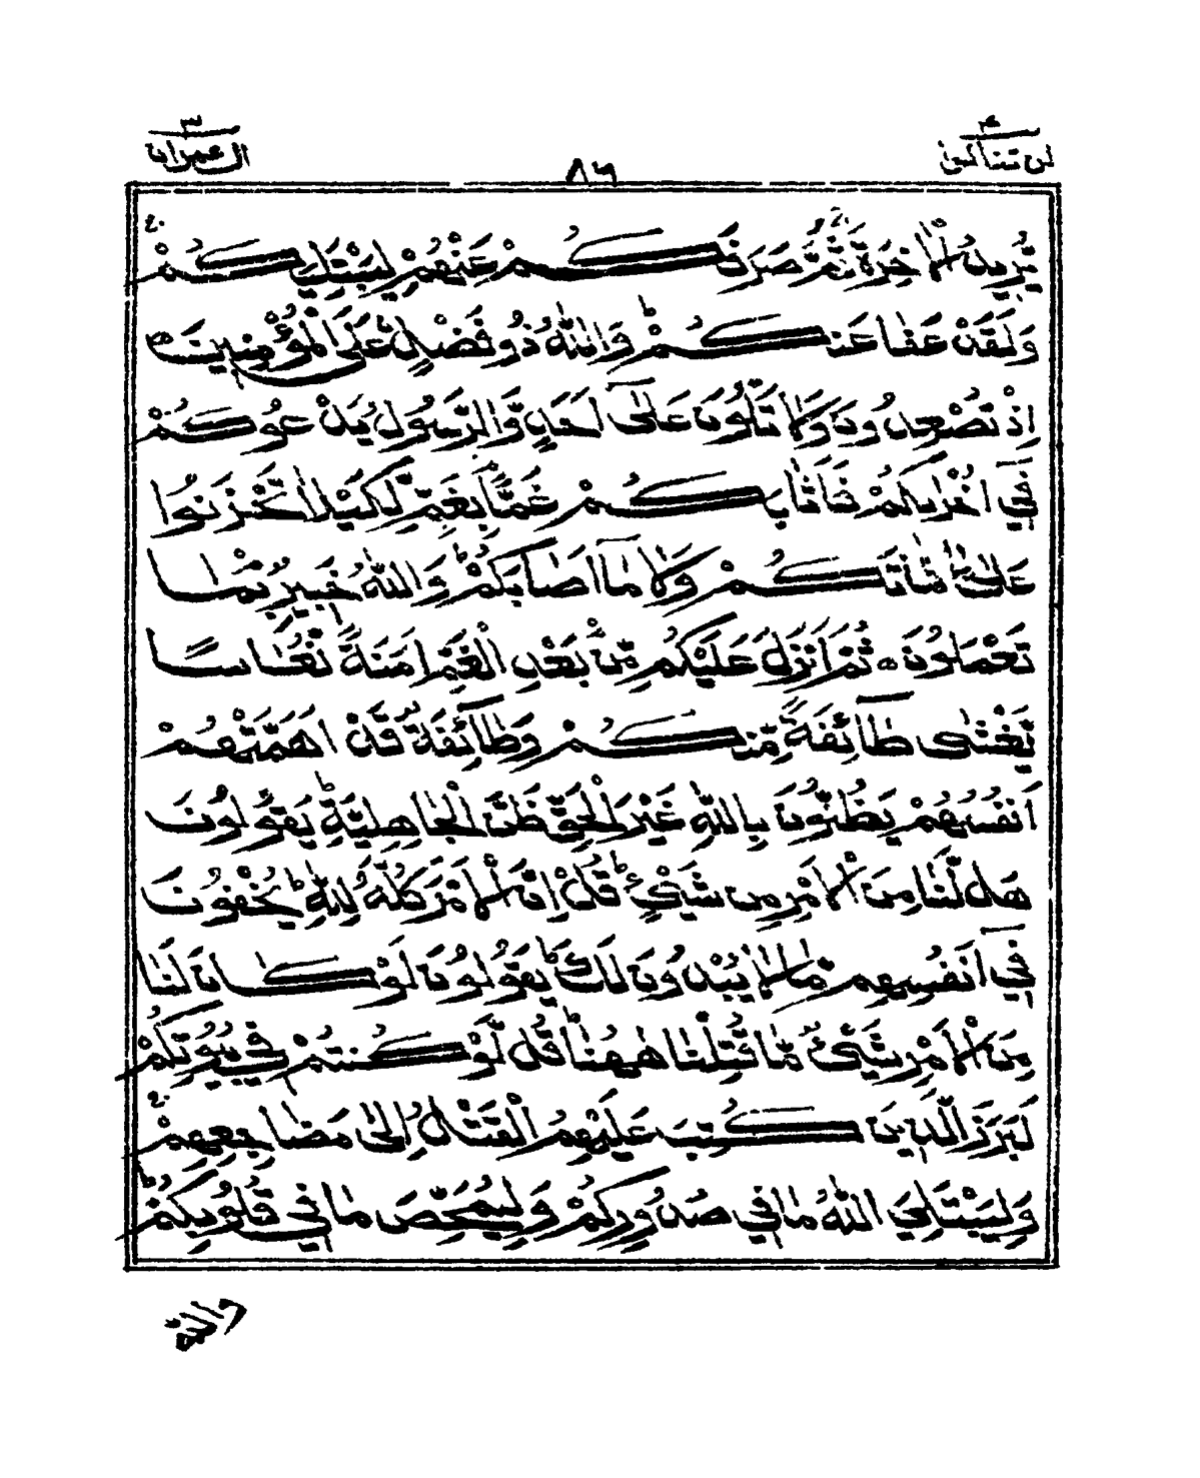 لن تنالوا ٤
٨٦
ال عمران ٣
يُّرِيْدُ الْاٰخِرَةَ ۚ ثُمَّ صَرَفَكُمْ عَنْهُمْ لِيَبْتَلِيَكُمْ ۚ
وَلَقَدْ عَفَا عَنْكُمْ ؕ وَاللّٰهُ ذُوْ فَضْلٍ عَلَى الْمُؤْمِنِيْنَ
اِذْ تُصْعِدُوْنَ وَلَا تَلْوٗنَ عَلٰٓى اَحَدٍ وَّالرَّسُوْلُ يَدْعُوْكُمْ
فِيْٓ اُخْرٰىكُمْ فَاَثَابَكُمْ غَمًّاۢ بِغَمٍّ لِّكَيْلَا تَحْزَنُوْا
عَلٰى مَا فَاتَكُمْ وَلَا مَآ اَصَابَكُمْ ؕ وَاللّٰهُ خَبِيْرٌۢ بِمَا
تَعْمَلُوْنَ ۝ ثُمَّ اَنْزَلَ عَلَيْكُمْ مِّنْۢ بَعْدِ الْغَمِّ اَمَنَةً نُّعَاسًا
يَّغْشٰى طَآئِفَةً مِّنْكُمْ وَطَآئِفَةٌ قَدْ اَهَمَّتْهُمْ
اَنْفُسُهُمْ يَظُنُّوْنَ بِاللّٰهِ غَيْرَ الْحَقِّ ظَنَّ الْجَاهِلِيَّةِ ؕ يَقُوْلُوْنَ
هَلْ لَّنَا مِنَ الْاَمْرِ مِنْ شَيْءٍ ؕ قُلْ اِنَّ الْاَمْرَ كُلَّهٗ لِلّٰهِ ؕ يُخْفُوْنَ
فِيْٓ اَنْفُسِهِمْ مَّا لَا يُبْدُوْنَ لَكَ ؕ يَقُوْلُوْنَ لَوْ كَانَ لَنَا
مِنَ الْاَمْرِ شَيْءٌ مَّا قُتِلْنَا هٰهُنَا ؕ قُلْ لَّوْ كُنْتُمْ فِيْ بُيُوْتِكُمْ
لَبَرَزَ الَّذِيْنَ كُتِبَ عَلَيْهِمُ الْقَتْلُ اِلٰى مَضَاجِعِهِمْ ۚ
وَلِيَبْتَلِيَ اللّٰهُ مَا فِيْ صُدُوْرِكُمْ وَلِيُمَحِّصَ مَا فِيْ قُلُوْبِكُمْ ؕ
وَاللّٰهُ